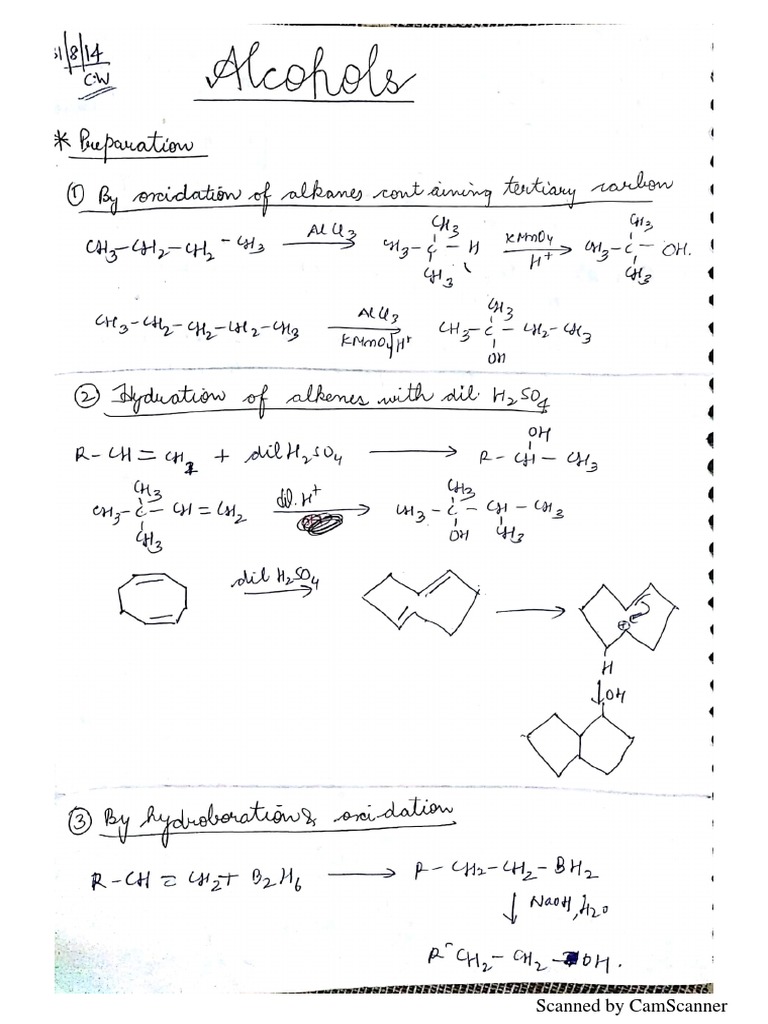 31/8/14
C.W
Alcohols
* Preparation
① By oxidation of alkanes containing tertiary carbon
CH3-CH2-CH2-CH3 AlCl3 → CH3-C-H CH3 CH3 KMnO4 H+ → CH3-C-OH. CH3 CH3
CH3-CH2-CH2-CH2-CH3 AlCl3 KMnO4/H+ → CH3-C-CH2-CH3 CH3 OH
② Hydration of alkenes with dil. H2SO4
R-CH=CH2 + dil H2SO4 → R-CH-CH3 OH
CH3-C-CH=CH2 CH3 CH3 dil. H+ → CH3-C-CH-CH3 CH3 OH CH3
dil H2SO4 → → ⊕ H
↓ OH
③ By hydroboration & oxidation
R-CH=CH2 + B2H6 → R-CH2-CH2-BH2
↓ NaOH, H2O
R-CH2-CH2-OH.
Scanned by CamScanner